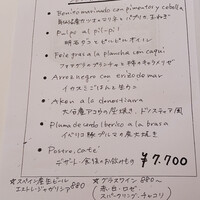 • Bonito marinado con pimientos y cebolla
• Pulpo al pil-pil
明石ダコとピルピルオイル
• Foie gras a la plancha con caqui
フォアグラのプランチャと柿とキャラメリゼ
• Arroz negro con erizo de mar
イカスミごはんと生ウニ
• Akou a la donostiarra
• Pluma de cerdo Iberico a la brasa
イベリコ豚プルマの炭火焼き
• Postre, café
デザート・食後のお飲みもの ¥7.700
※スペイン産生ビール
エストレージャガリシア 880
※グラスワイン 880〜
(赤・白・ロゼ
スパークリング・チャコリ)